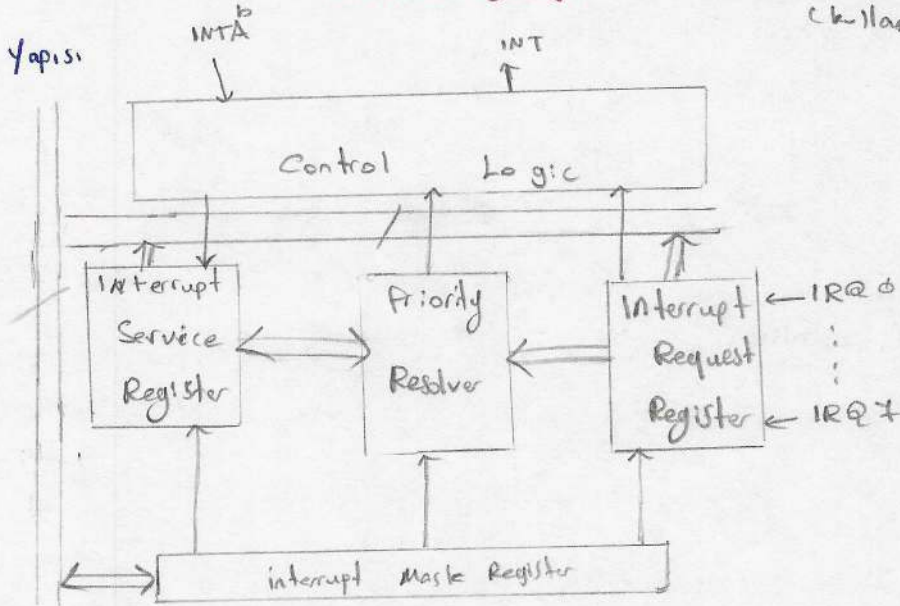 Yapısı
INTA
INT
Control Logic
Interrupt
Service
Register
Priority
Resolver
Interrupt
Request
Register
IRQ 0
IRQ 7
interrupt Mask Register